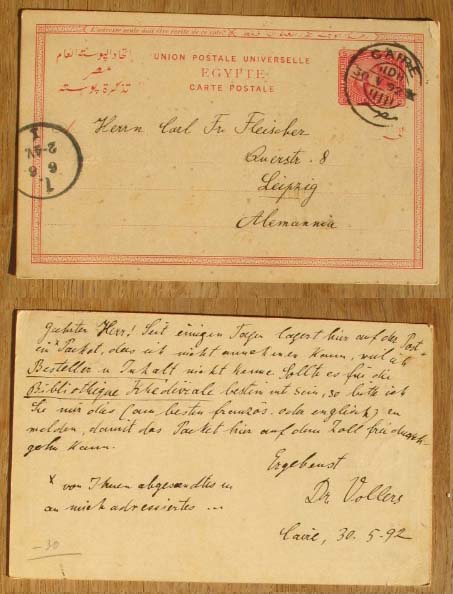 L'adresse seule doit être écrite de ce côté
اتحاد البوستة العام
مصر
تذكرة بوستة
UNION POSTALE UNIVERSELLE
EGYPTE
CARTE POSTALE
CAIRE
30 V 92
Herrn Carl Fr Fleischer
Querstr. 8
Leipzig
Alemannia
1
6 6
2-4N
1
Geehrter Herr! Seit einigen Tagen lagert hier auf der Post
ein x Packet, das ich nicht annehmen kann, weil ich
Besteller u Inhalt nicht kenne. Sollte es für die
Bibliothèque Khédiviale bestimmt sein, so bitte ich
Sie mir dies (am besten französ. oder englisch) zu
melden, damit das Packet hier auf dem Zoll frei
gehn kann.
Ergebenst
Dr. Vollers
x von Ihnen abgesandtes u
an mich adressiertes ...
Caire, 30. 5. 92
-30